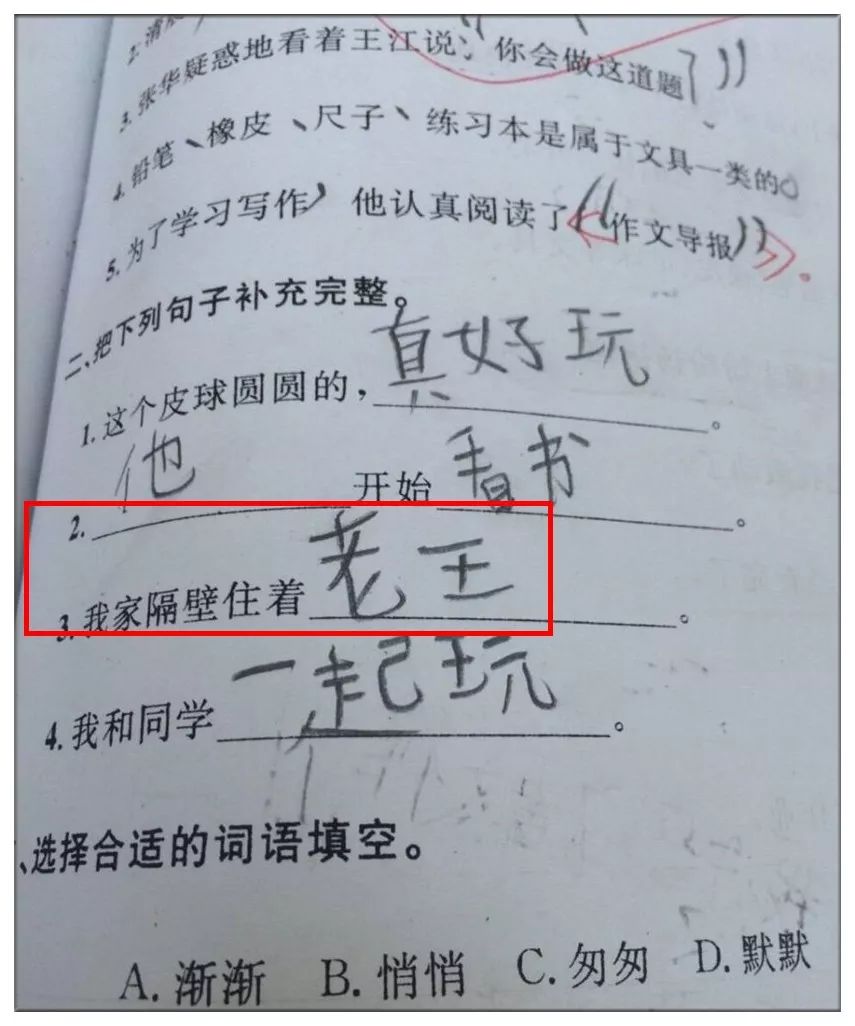 2.清晨
3.张华疑惑地看着王江说:“你会做这道题?”
4.铅笔、橡皮、尺子、练习本是属于文具一类的。
5.为了学习写作,他认真阅读了《作文导报》。
二、把下列句子补充完整。
1.这个皮球圆圆的,真好玩。
2.他开始看书。
3.我家隔壁住着老王。
4.我和同学一起玩。
、选择合适的词语填空。
A.渐渐 B.悄悄 C.匆匆 D.默默